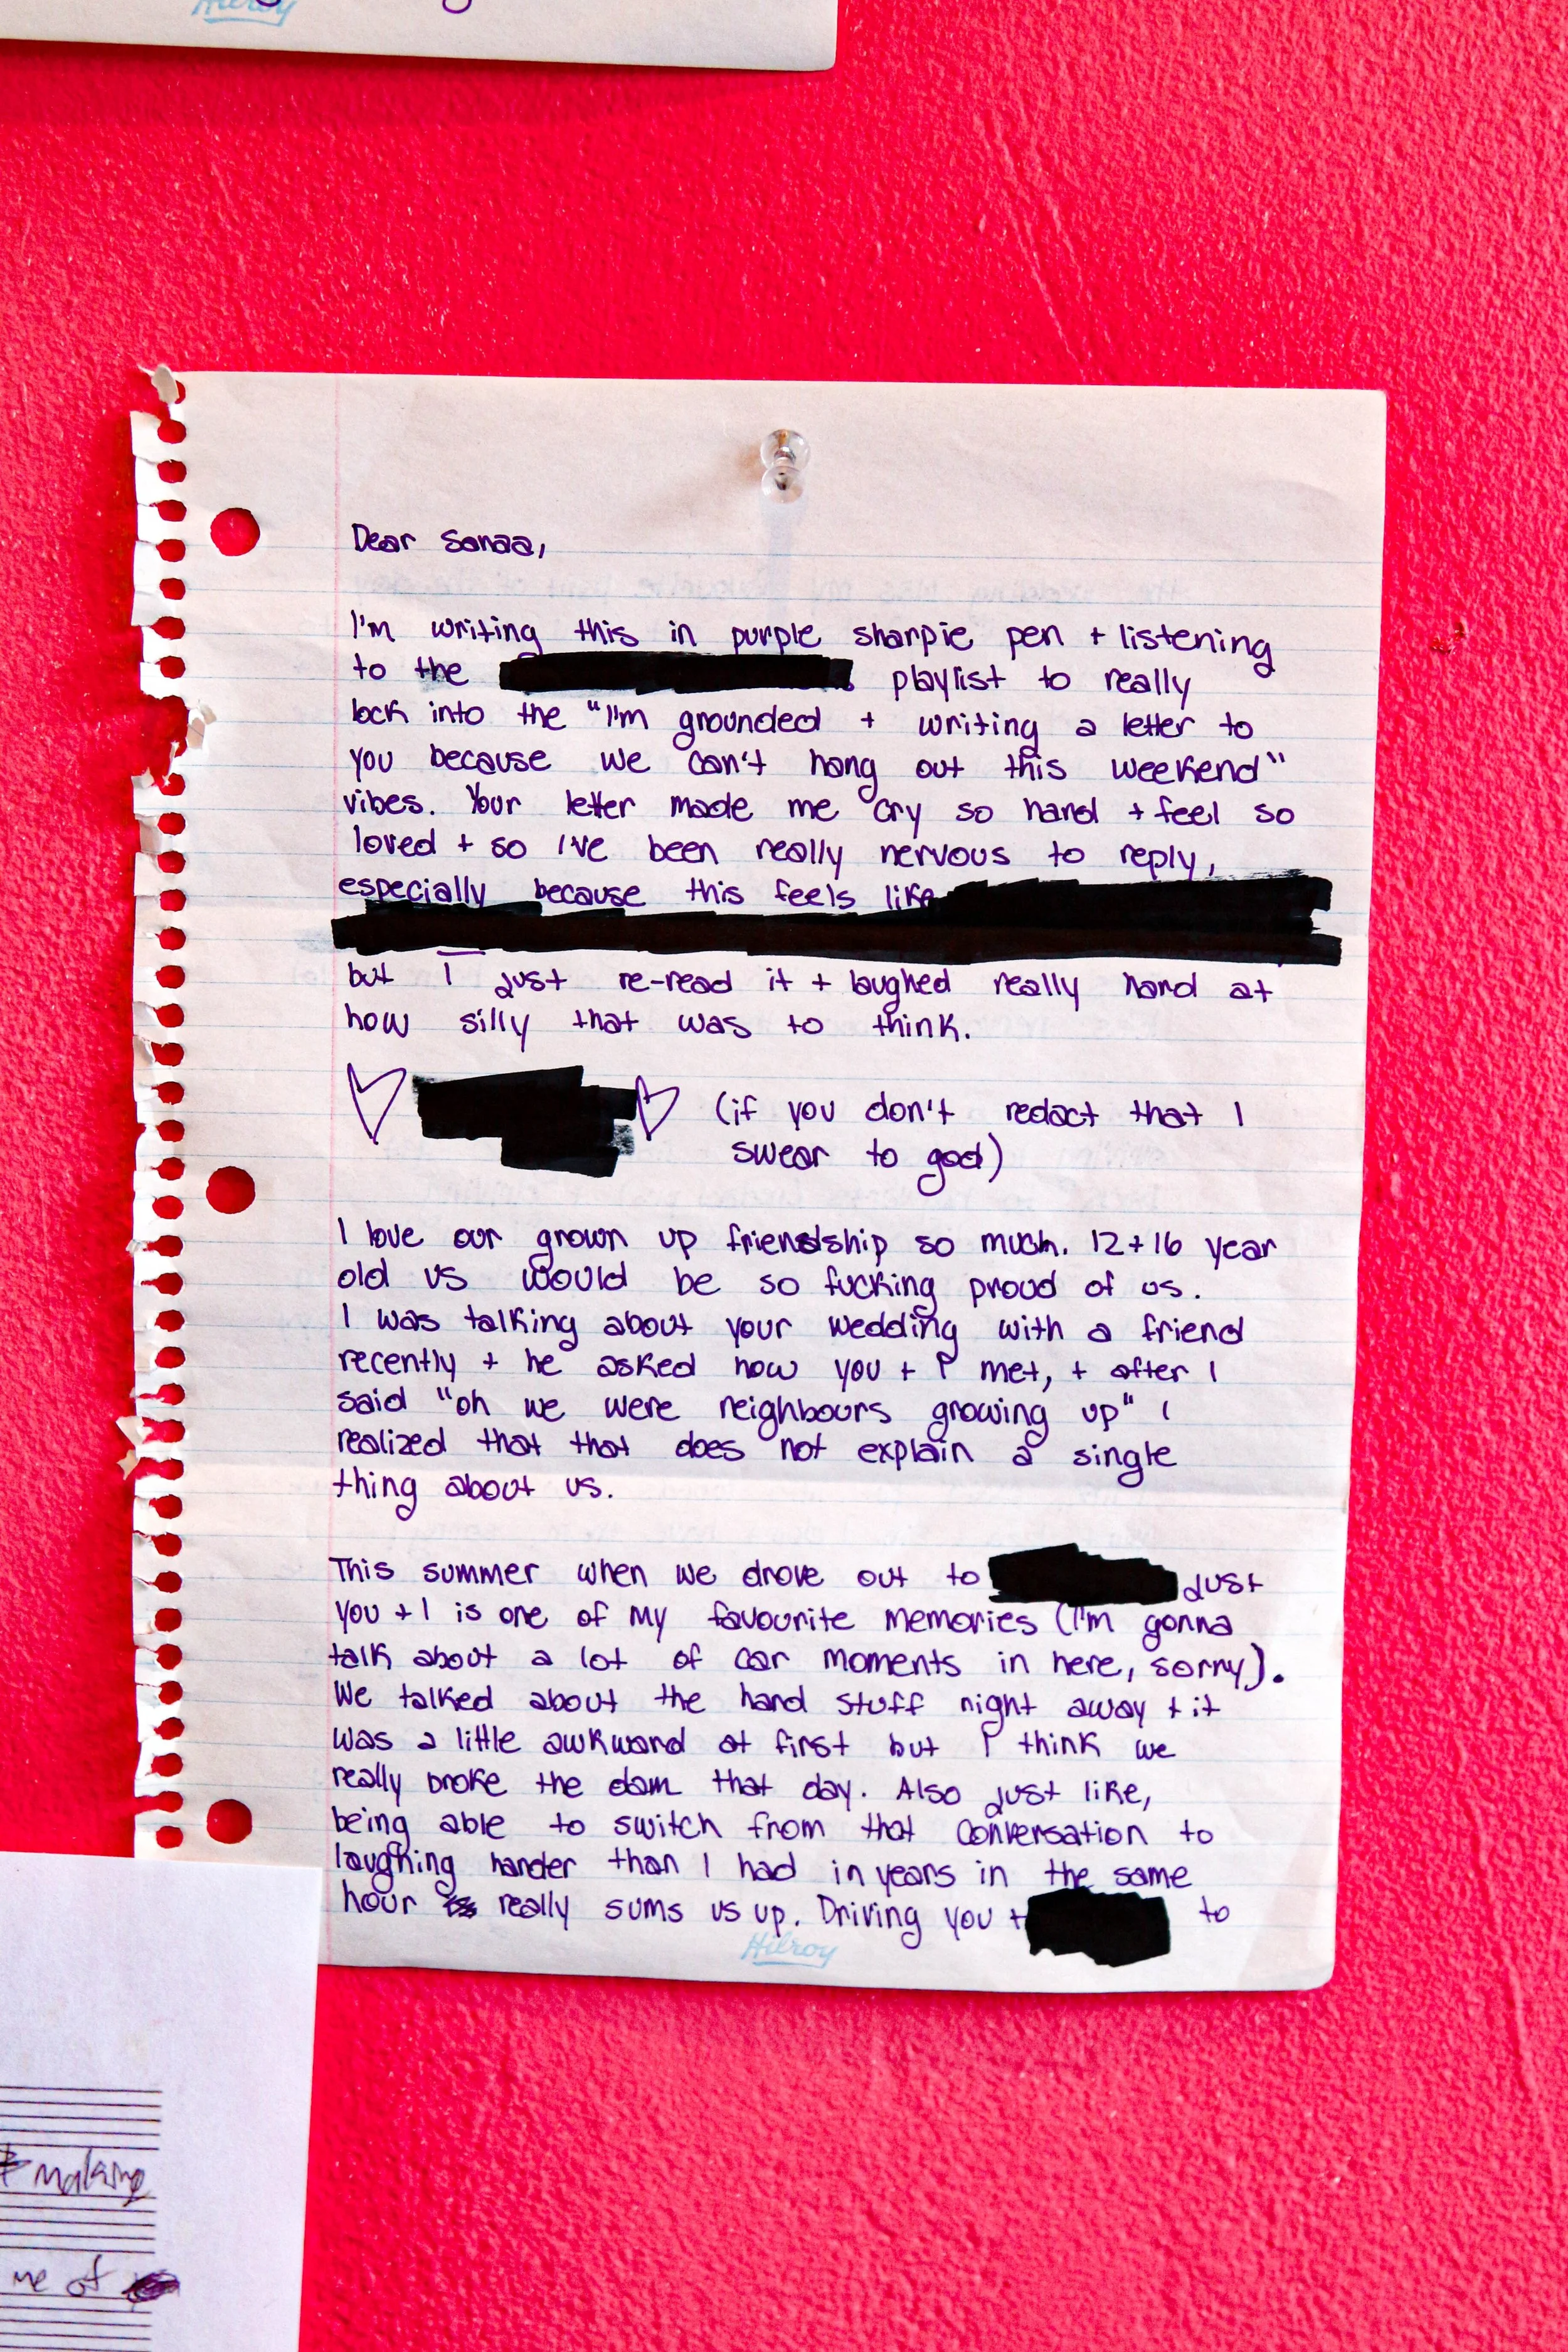 Hilroy
Dear Sanaa,
I'm writing this in purple sharpie pen + listening
to the playlist to really
lock into the "I'm grounded + writing a letter to
you because we can't hang out this weekend"
vibes. Your letter made me cry so hard + feel so
loved + so I've been really nervous to reply,
especially because this feels like
but I just re-read it + laughed really hard at
how silly that was to think.
(if you don't redact that I
swear to god)
I love our grown up friendship so much. 12+16 year
old us would be so fucking proud of us.
I was talking about your wedding with a friend
recently + he asked how you + I met, + after I
said "oh we were neighbours growing up" I
realized that that does not explain a single
thing about us.
This summer when we drove out to just
you + I is one of my favourite memories (I'm gonna
talk about a lot of car moments in here, sorry).
We talked about the hard stuff right away + it
was a little awkward at first but I think we
really broke the dam that day. Also just like,
being able to switch from that conversation to
laughing harder than I had in years in the same
hour really sums us up. Driving you + to
Hilroy
making
me of